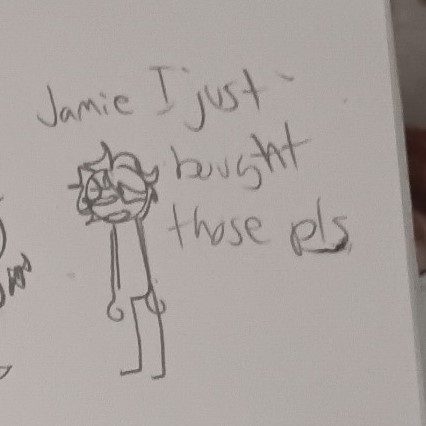 Jamie I just
bought
those pls